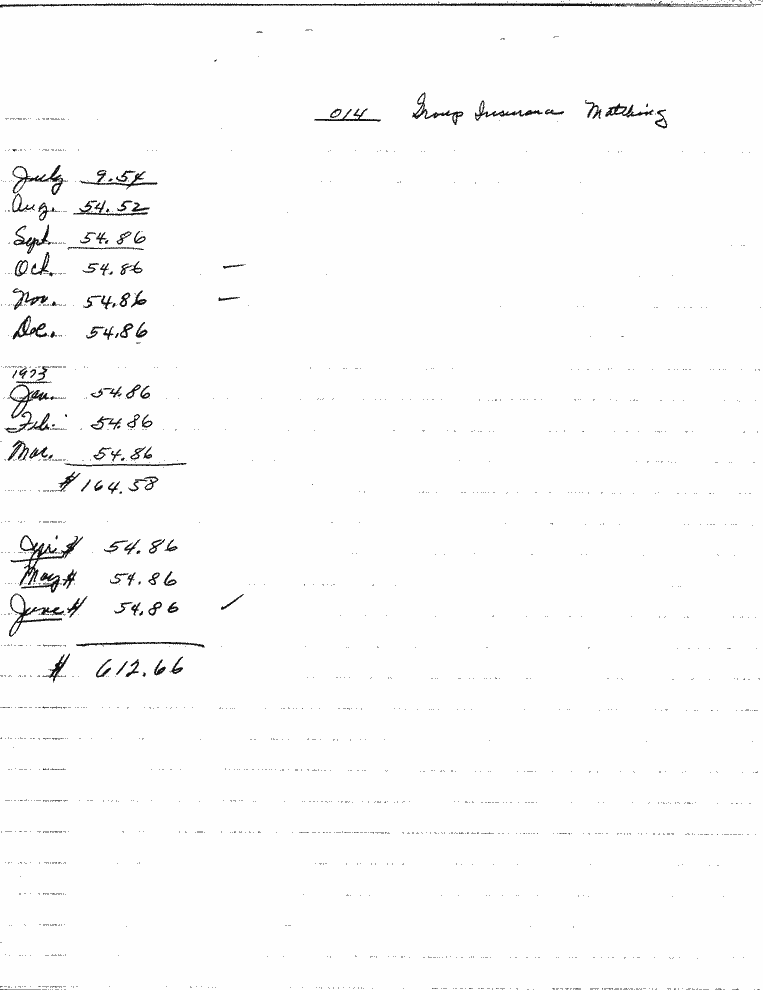 014 Group Insurance Matching
July 9.54
Aug. 54.52
Sept. 54.86
Oct. 54.86 —
Nov. 54.86 —
Dec. 54.86
1973
Jan. 54.86
Feb. 54.86
Mar. 54.86
$164.58
Apri $ 54.86
May $ 54.86
June $ 54.86 ✓
$ 612.66